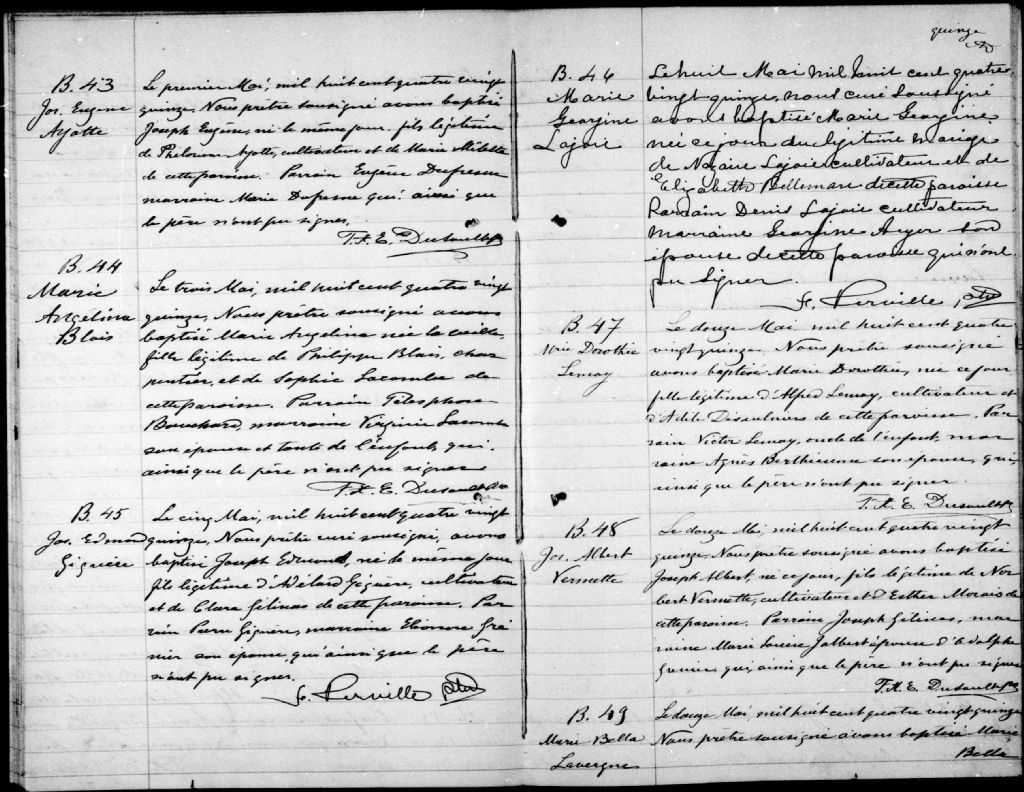 B. 43
Jos. Eugene
Ayotte
Le premier Mai, mil huit cent quatre vingt
quinze, Nous prêtre sousigné avons baptisé
Joseph Eugène, né le même jour fils légitime
de Philorum Ayotte, cultivateur et de Marie Milette
de cette paroisse. Parrain Eugène Dufresne
marraine Marie Dufresne qui ainsi que
le père n'ont pu signer.
F. X. E. Dusault ptr
B. 44
Marie
Angelina
Blais
Le trois Mai, mil huit cent quatre vingt
quinze, Nous prêtre sousigné avons
baptisé Marie Angelina née la veille
fille légitime de Philippe Blais, char
pentier, et de Sophie Lacombe de
cette paroisse. Parrain Télesphore
Bouchard, marraine Virginie Lacombe
son épouse et tante de l'enfant, qui
ainsi que le père n'ont pu signer
F. X. E. Dusault ptr
B. 45
Jos. Edmond
Giguère
Le cinq Mai, mil huit cent quatre vingt
quinze, Nous prêtre curé sousigné, avons
baptisé Joseph Edmond, né le même jour
fils légitime d'Adélard Giguère, cultivateur
et de Clara Gélinas de cette paroisse. Par
rain Pierre Giguère, marraine Eléonore Gré
nier son épouse, qui ainsi que le père
n'ont pu signer.
F. Verville ptre
quinze
B. 46
Marie
Georgine
Lajoie
Le huit Mai mil huit cent quatre
vingt quinze, nous curé soussigné
avons baptisé Marie Georgine
née ce jour du légitime mariage
de Nazaire Lajoie cultivateur et de
Elizabeth Bellemare de cette paroisse
Parrain Denis Lajoie cultivateur
marraine Georgine Auger son
épouse de cette paroisse qui n'ont
pu signer.
F. Verville ptre
B. 47
Mrie Dorothée
Lemay
Le douze Mai, mil huit cent quatre
vingt quinze. Nous prêtre sousigné
avons baptisé Marie Dorothée, née ce jour
fille légitime d'Alfred Lemay, cultivateur et
d'Adèle Desaulniers de cette paroisse. Par
rain Victor Lemay, oncle de l'enfant, mar
raine Agnès Berthiaume son épouse, qui
ainsi que le père n'ont pu signer.
F. X. E. Dusault ptr
B. 48
Jos. Albert
Vermette
Le douze Mai, mil huit cent quatre vingt
quinze. Nous prêtre sousigné avons baptisé
Joseph Albert, né ce jour, fils légitime de Nor
bert Vermette, cultivateur et d'Esther Morais de
cette paroisse. Parrain Joseph Gélinas, mar
raine Marie Louise Jalbert épouse d'Adolphe
qui, ainsi que le père n'ont pu signer
F. X. E. Dusault ptr
B. 49
Marie Bella
Lavergne
Le douze Mai, mil huit cent quatre vingt quinze
Nous prêtre sousigné avons baptisé Marie
Bella